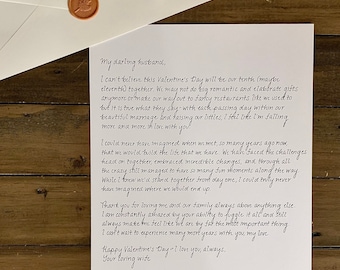 My darling husband,
I can't believe this Valentine's Day will be our tenth (maybe
eleventh) together. We may not do big romantic and elaborate gifts
anymore or make our way out to fancy restaurants like we used to
but it is true what they say - with each passing day within our
beautiful marriage and raising our littles, I feel like I'm falling
more and more in love with you.
I could never have imagined when we met, so many years ago now
that we would build the life that we have. We have faced the challenges
head on together, embraced incredible changes, and through all
the crazy still managed to have so many fun moments along the way.
While I knew we'd stand together from day one, I could truly never
have imagined where we would end up.
Thank you for loving me and our family always above anything else.
I am constantly amazed by your ability to juggle it all and still
always make me feel like we are by far the most important thing.
I can't wait to experience many more years with you my love.
Happy Valentine's Day - I love you, always.
Your loving wife